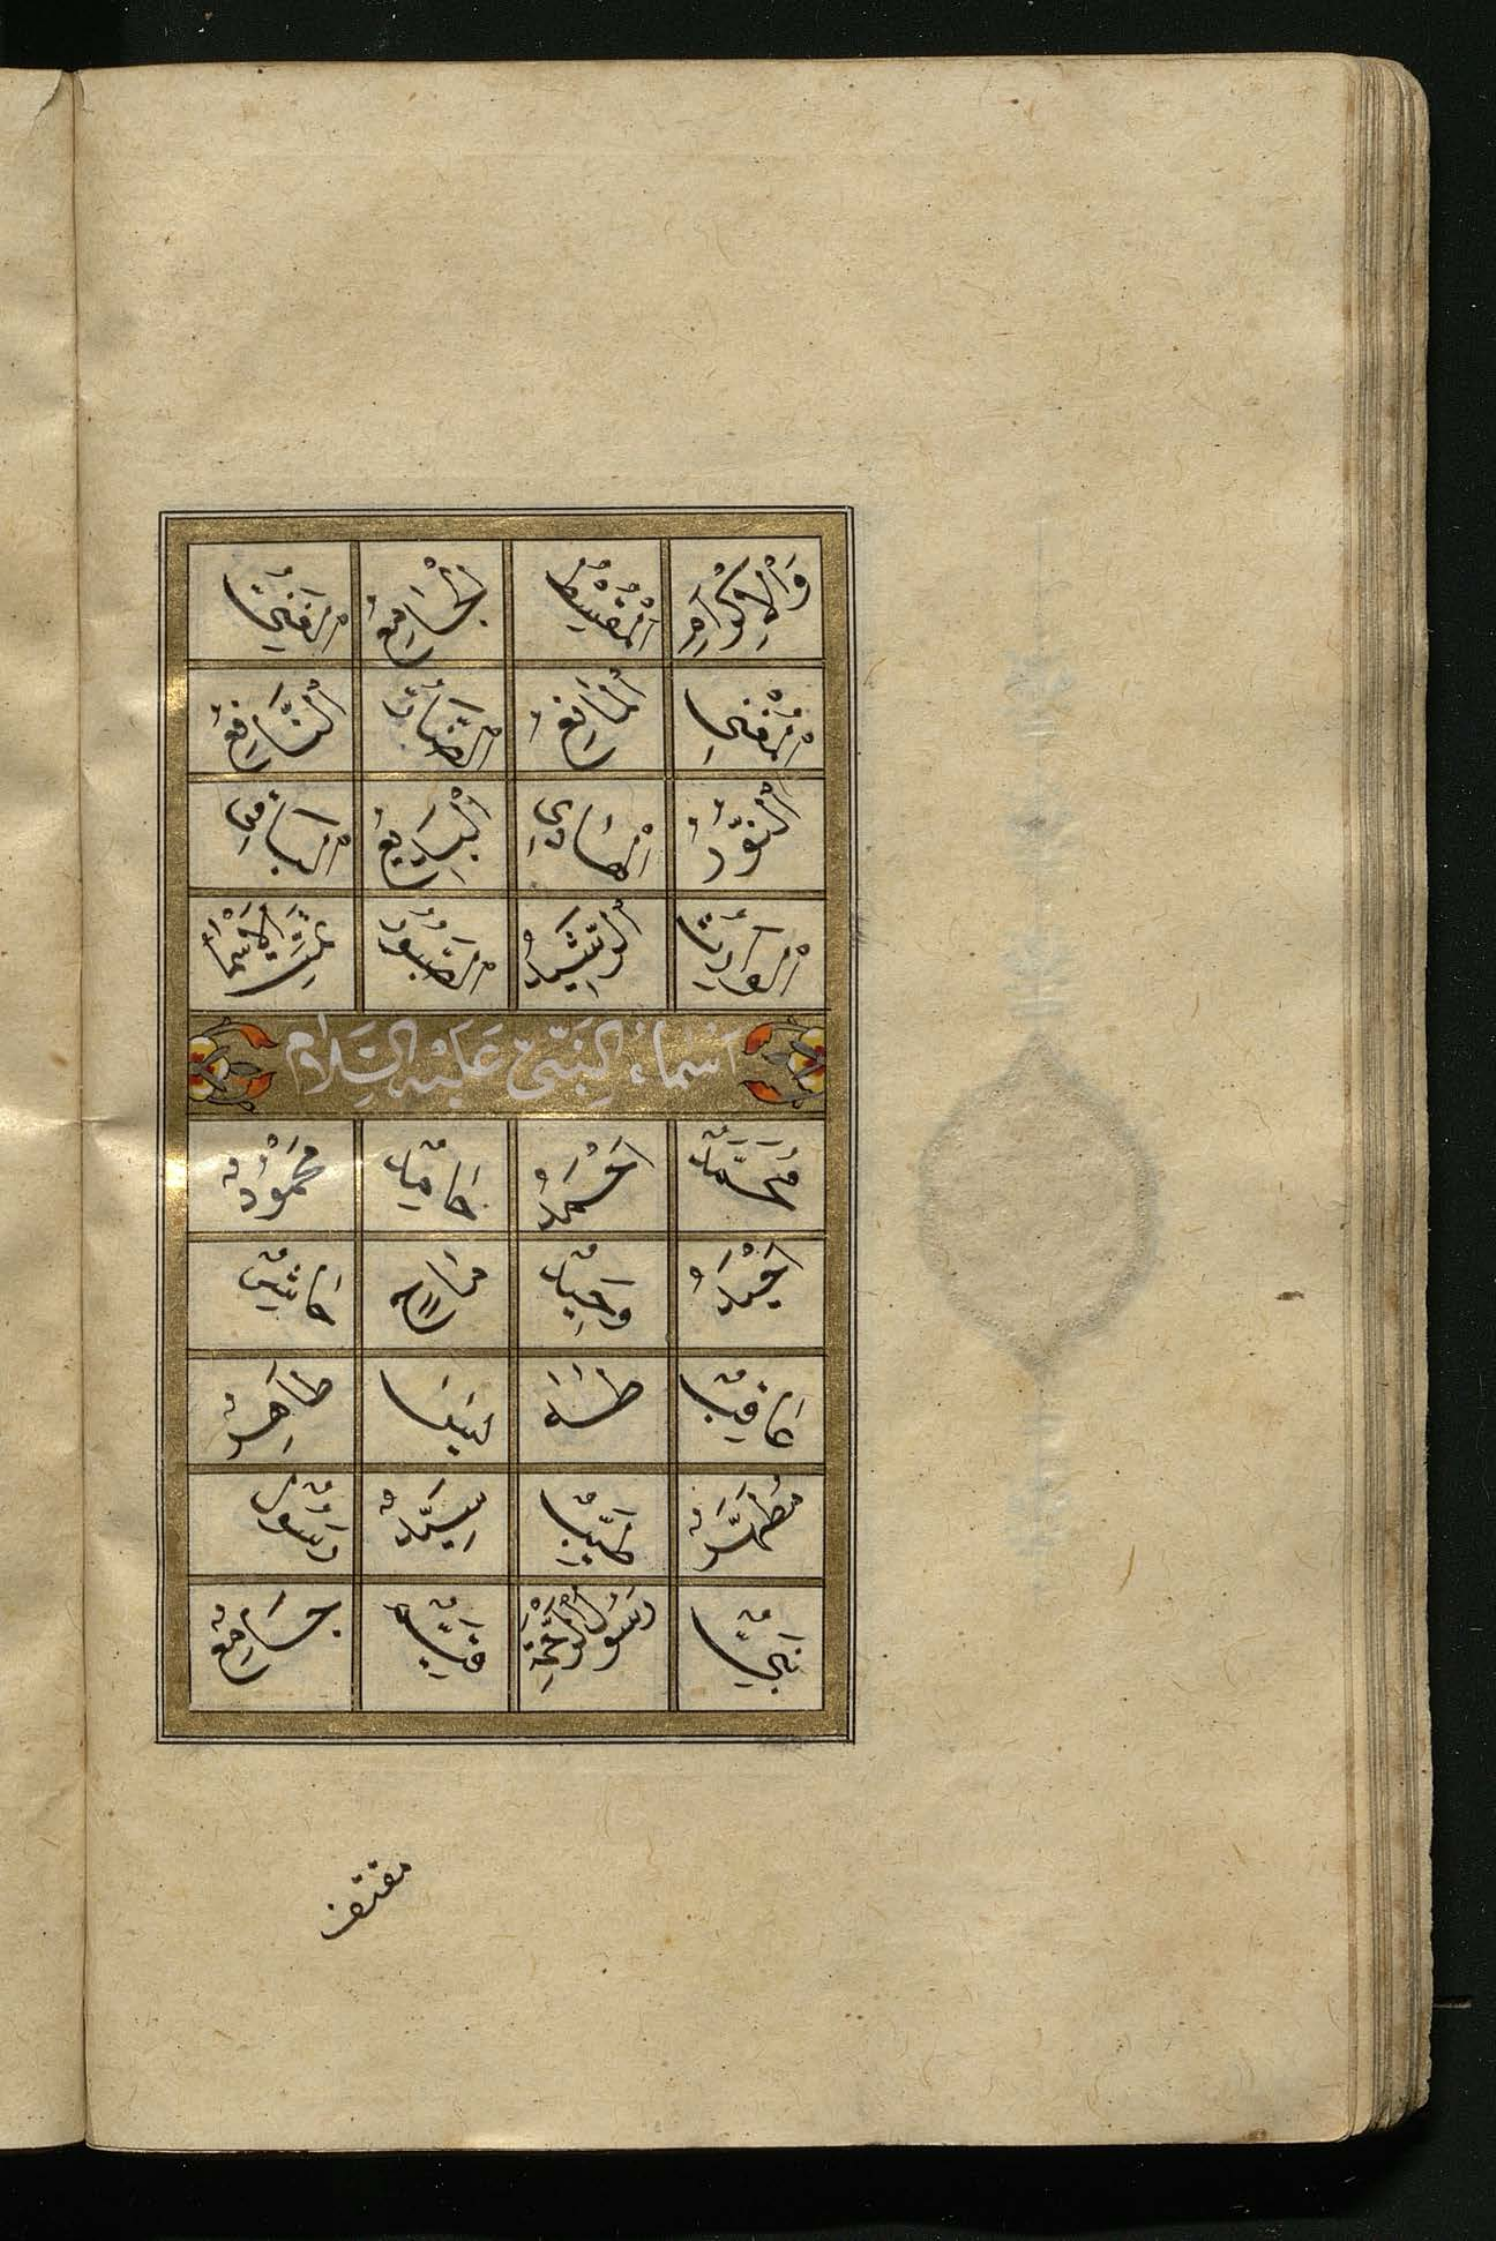 وَالْاِكْرَامِ الْمُقْسِطُ الْجَامِعُ الْغَنِىُّ
الْمُغْنِى الْمَانِعُ الضَّارُّ النَّافِعُ
النُّورُ الْهَادِى الْبَدِيعُ الْبَاقِى
الْوَارِثُ الرَّشِيدُ الصَّبُورُ تَمَّتِ الْاَسْمَاءُ
اَسْمَاءُ النَّبِىِّ عَلَيْهِ السَّلَامُ
مُحَمَّدٌ اَحْمَدُ حَامِدٌ مَحْمُودٌ
اَحْيَدُ وَحِيدٌ مَاحٍ حَاشِرٌ
عَاقِبٌ طٰهٰ يٰسٓ طَاهِرٌ
مُطَهَّرٌ طَيِّبٌ سَيِّدٌ رَسُولٌ
نَبِىٌّ رَسُولُ الرَّحْمَةِ قَيِّمٌ جَامِعٌ
مقتف